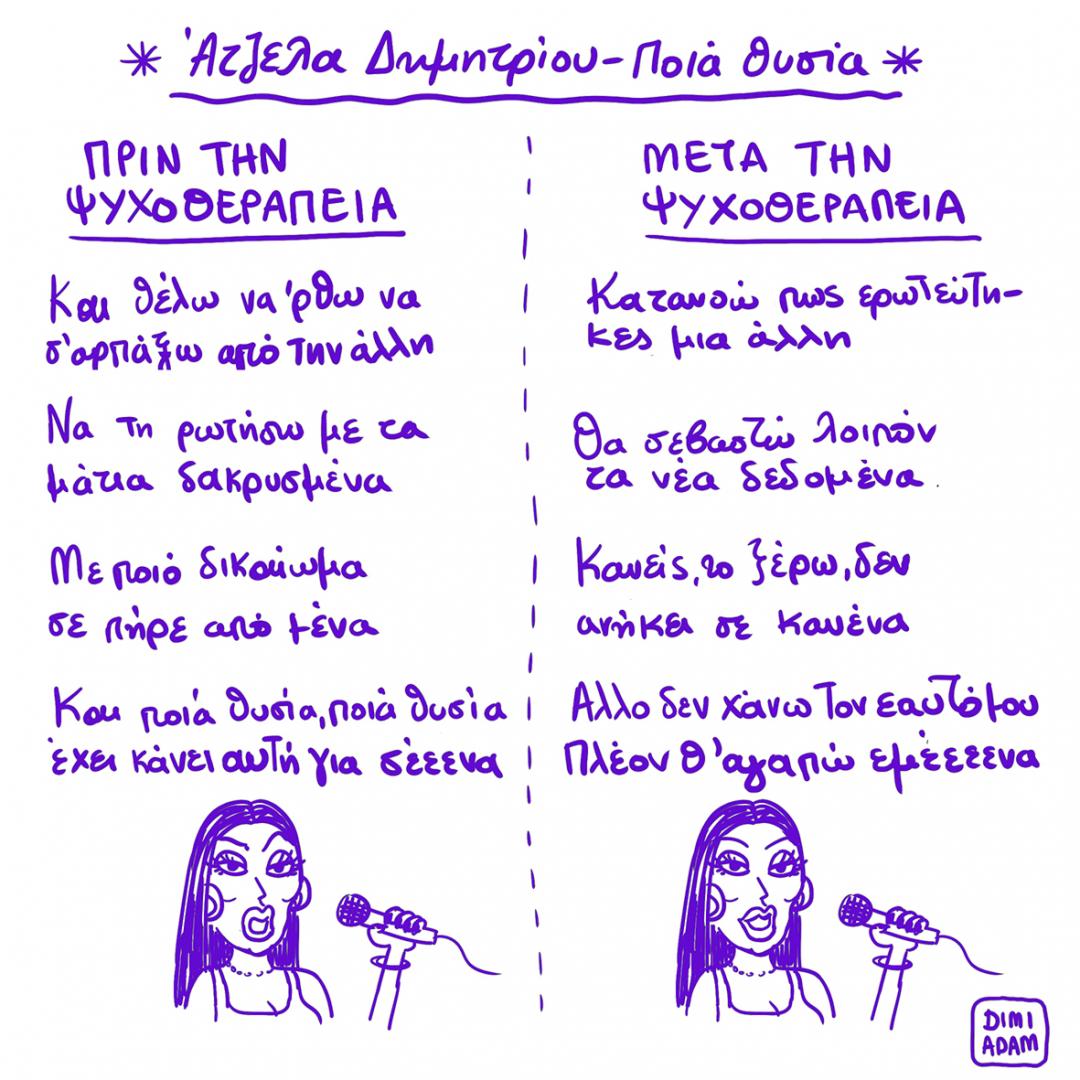 * Άτζελα Δημητρίου - Ποιά θυσία *
ΠΡΙΝ ΤΗΝ
ΨΥΧΟΘΕΡΑΠΕΙΑ
Και θέλω να 'ρθω να
σ'αρπάξω από την άλλη
Να τη ρωτήσω με τα
μάτια δακρυσμένα
Με ποιό δικαίωμα
σε πήρε από μένα
Και ποιά θυσία, ποιά θυσία
έχει κάνει αυτή για σέεενα
ΜΕΤΑ ΤΗΝ
ΨΥΧΟΘΕΡΑΠΕΙΑ
Κατανοώ πως ερωτεύτη-
κες μια άλλη
Θα σεβαστώ λοιπόν
τα νέα δεδομένα.
Κανείς, το ξέρω, δεν
ανήκει σε κανένα
Αλλο δεν χάνω τον εαυτό μου
Πλέον θ'αγαπώ εμέεεενα
DIMI
ADAM